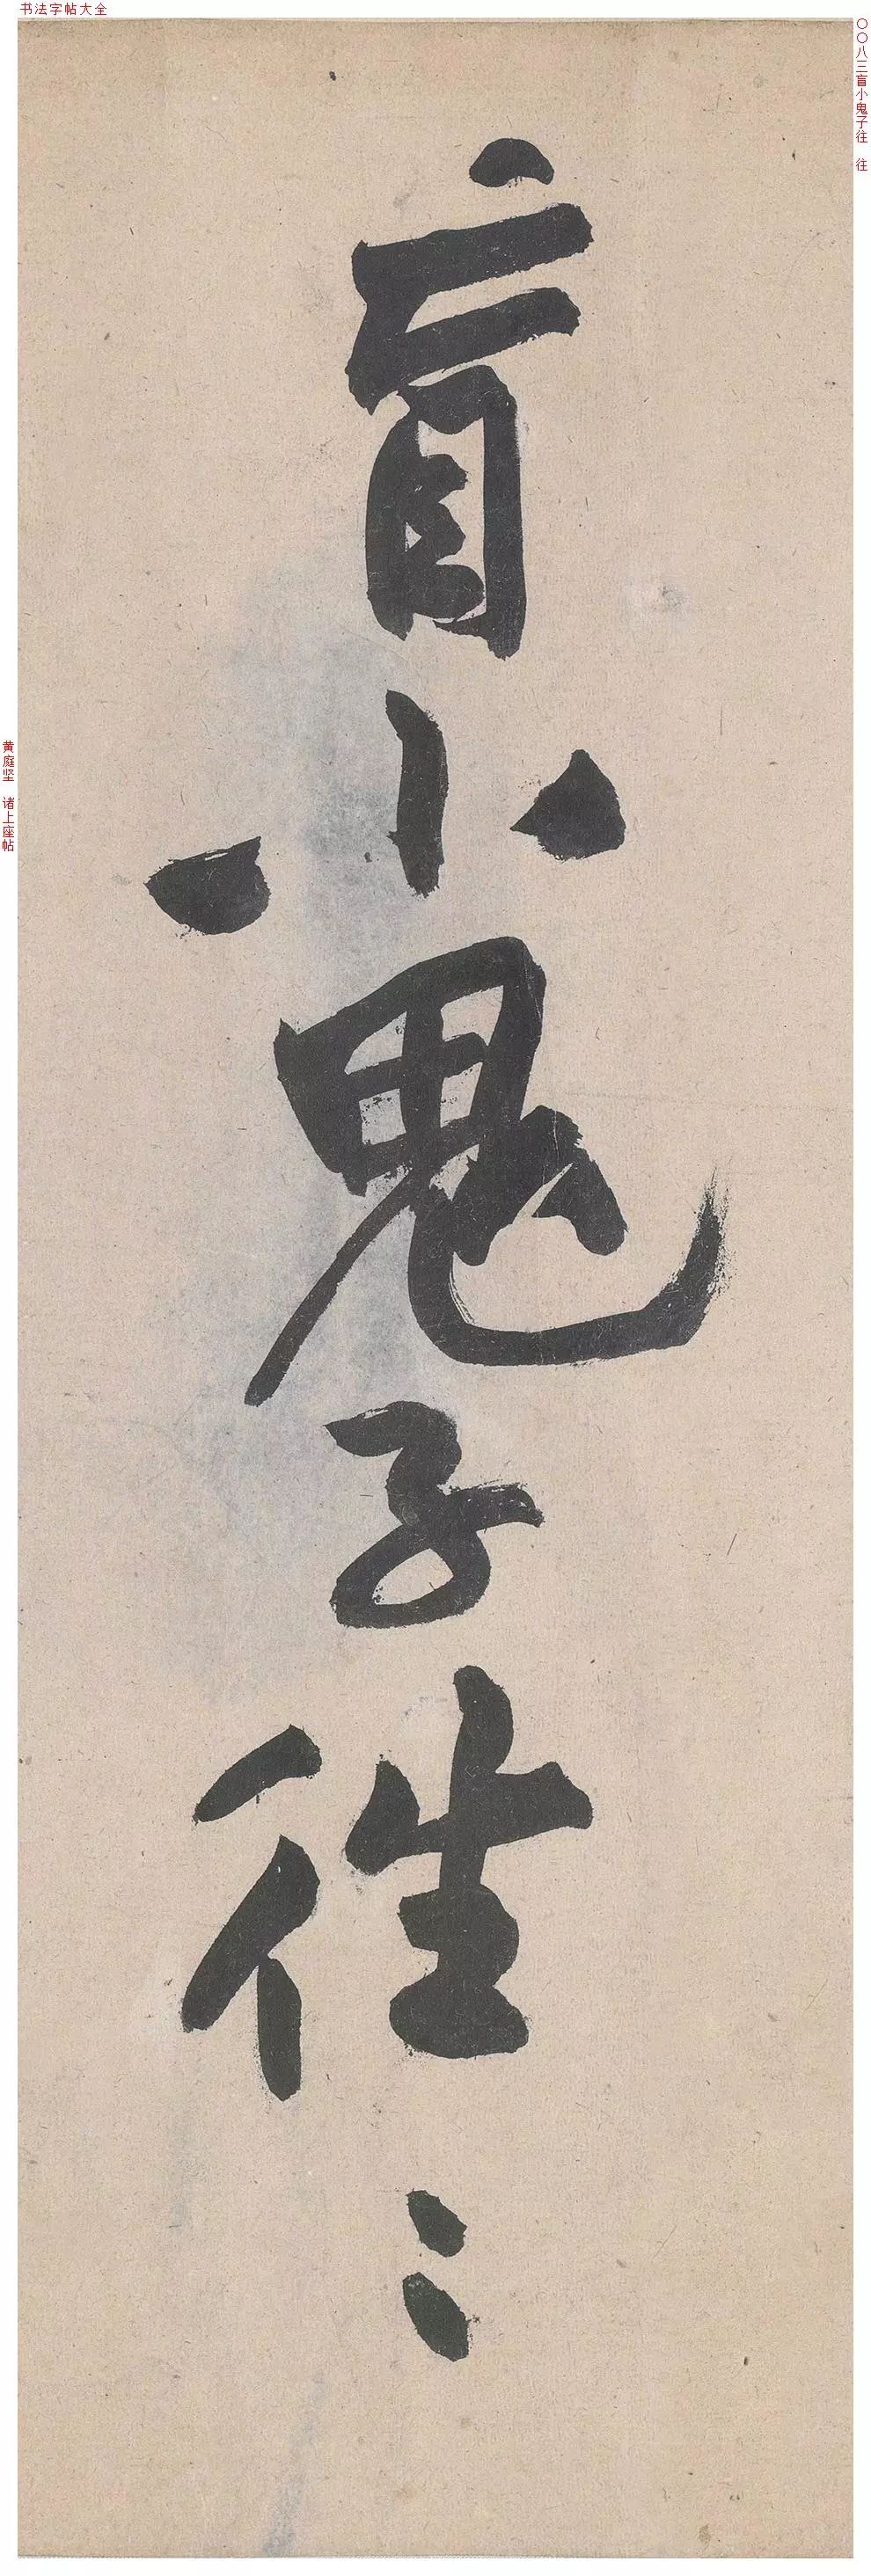 书法字帖大全
〇〇八三盲小鬼子往 往
盲小鬼子往〻
黄庭坚 诸上座帖